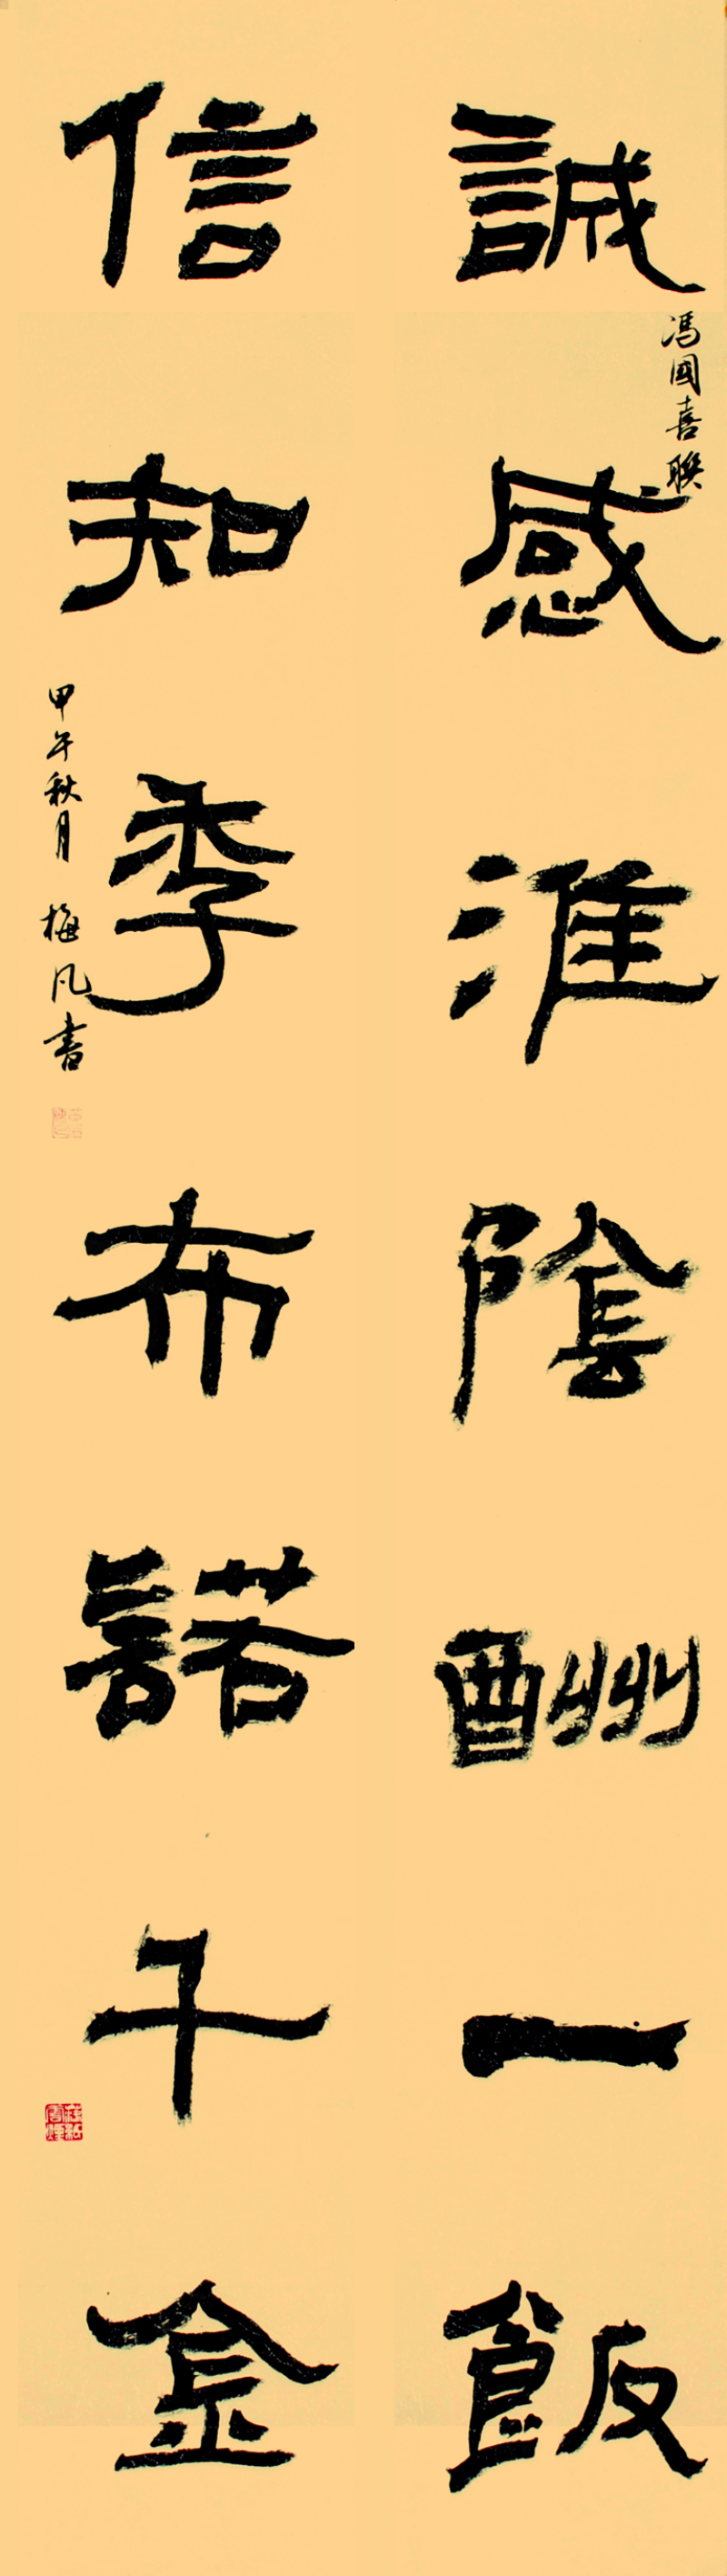 誠感淮陰酬一飯
馮國喜聯
信知季布諾千金
甲午秋月 梅凡書